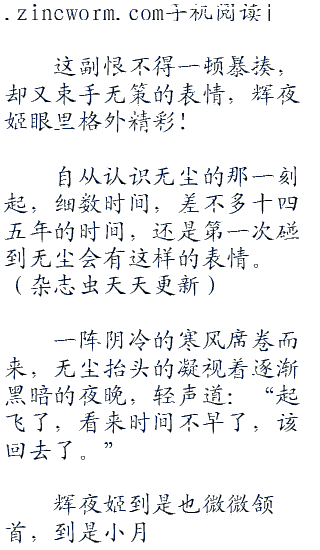 .zincworm.com手机阅读i
这副恨不得一顿暴揍，
却又束手无策的表情，辉夜
姬眼里格外精彩！
自从认识无尘的那一刻
起，细数时间，差不多十四
五年的时间，还是第一次碰
到无尘会有这样的表情。
（杂志虫天天更新）
一阵阴冷的寒风席卷而
来，无尘抬头的凝视着逐渐
黑暗的夜晚，轻声道：“起
飞了，看来时间不早了，该
回去了。”
辉夜姬到是也微微颔
首，到是小月